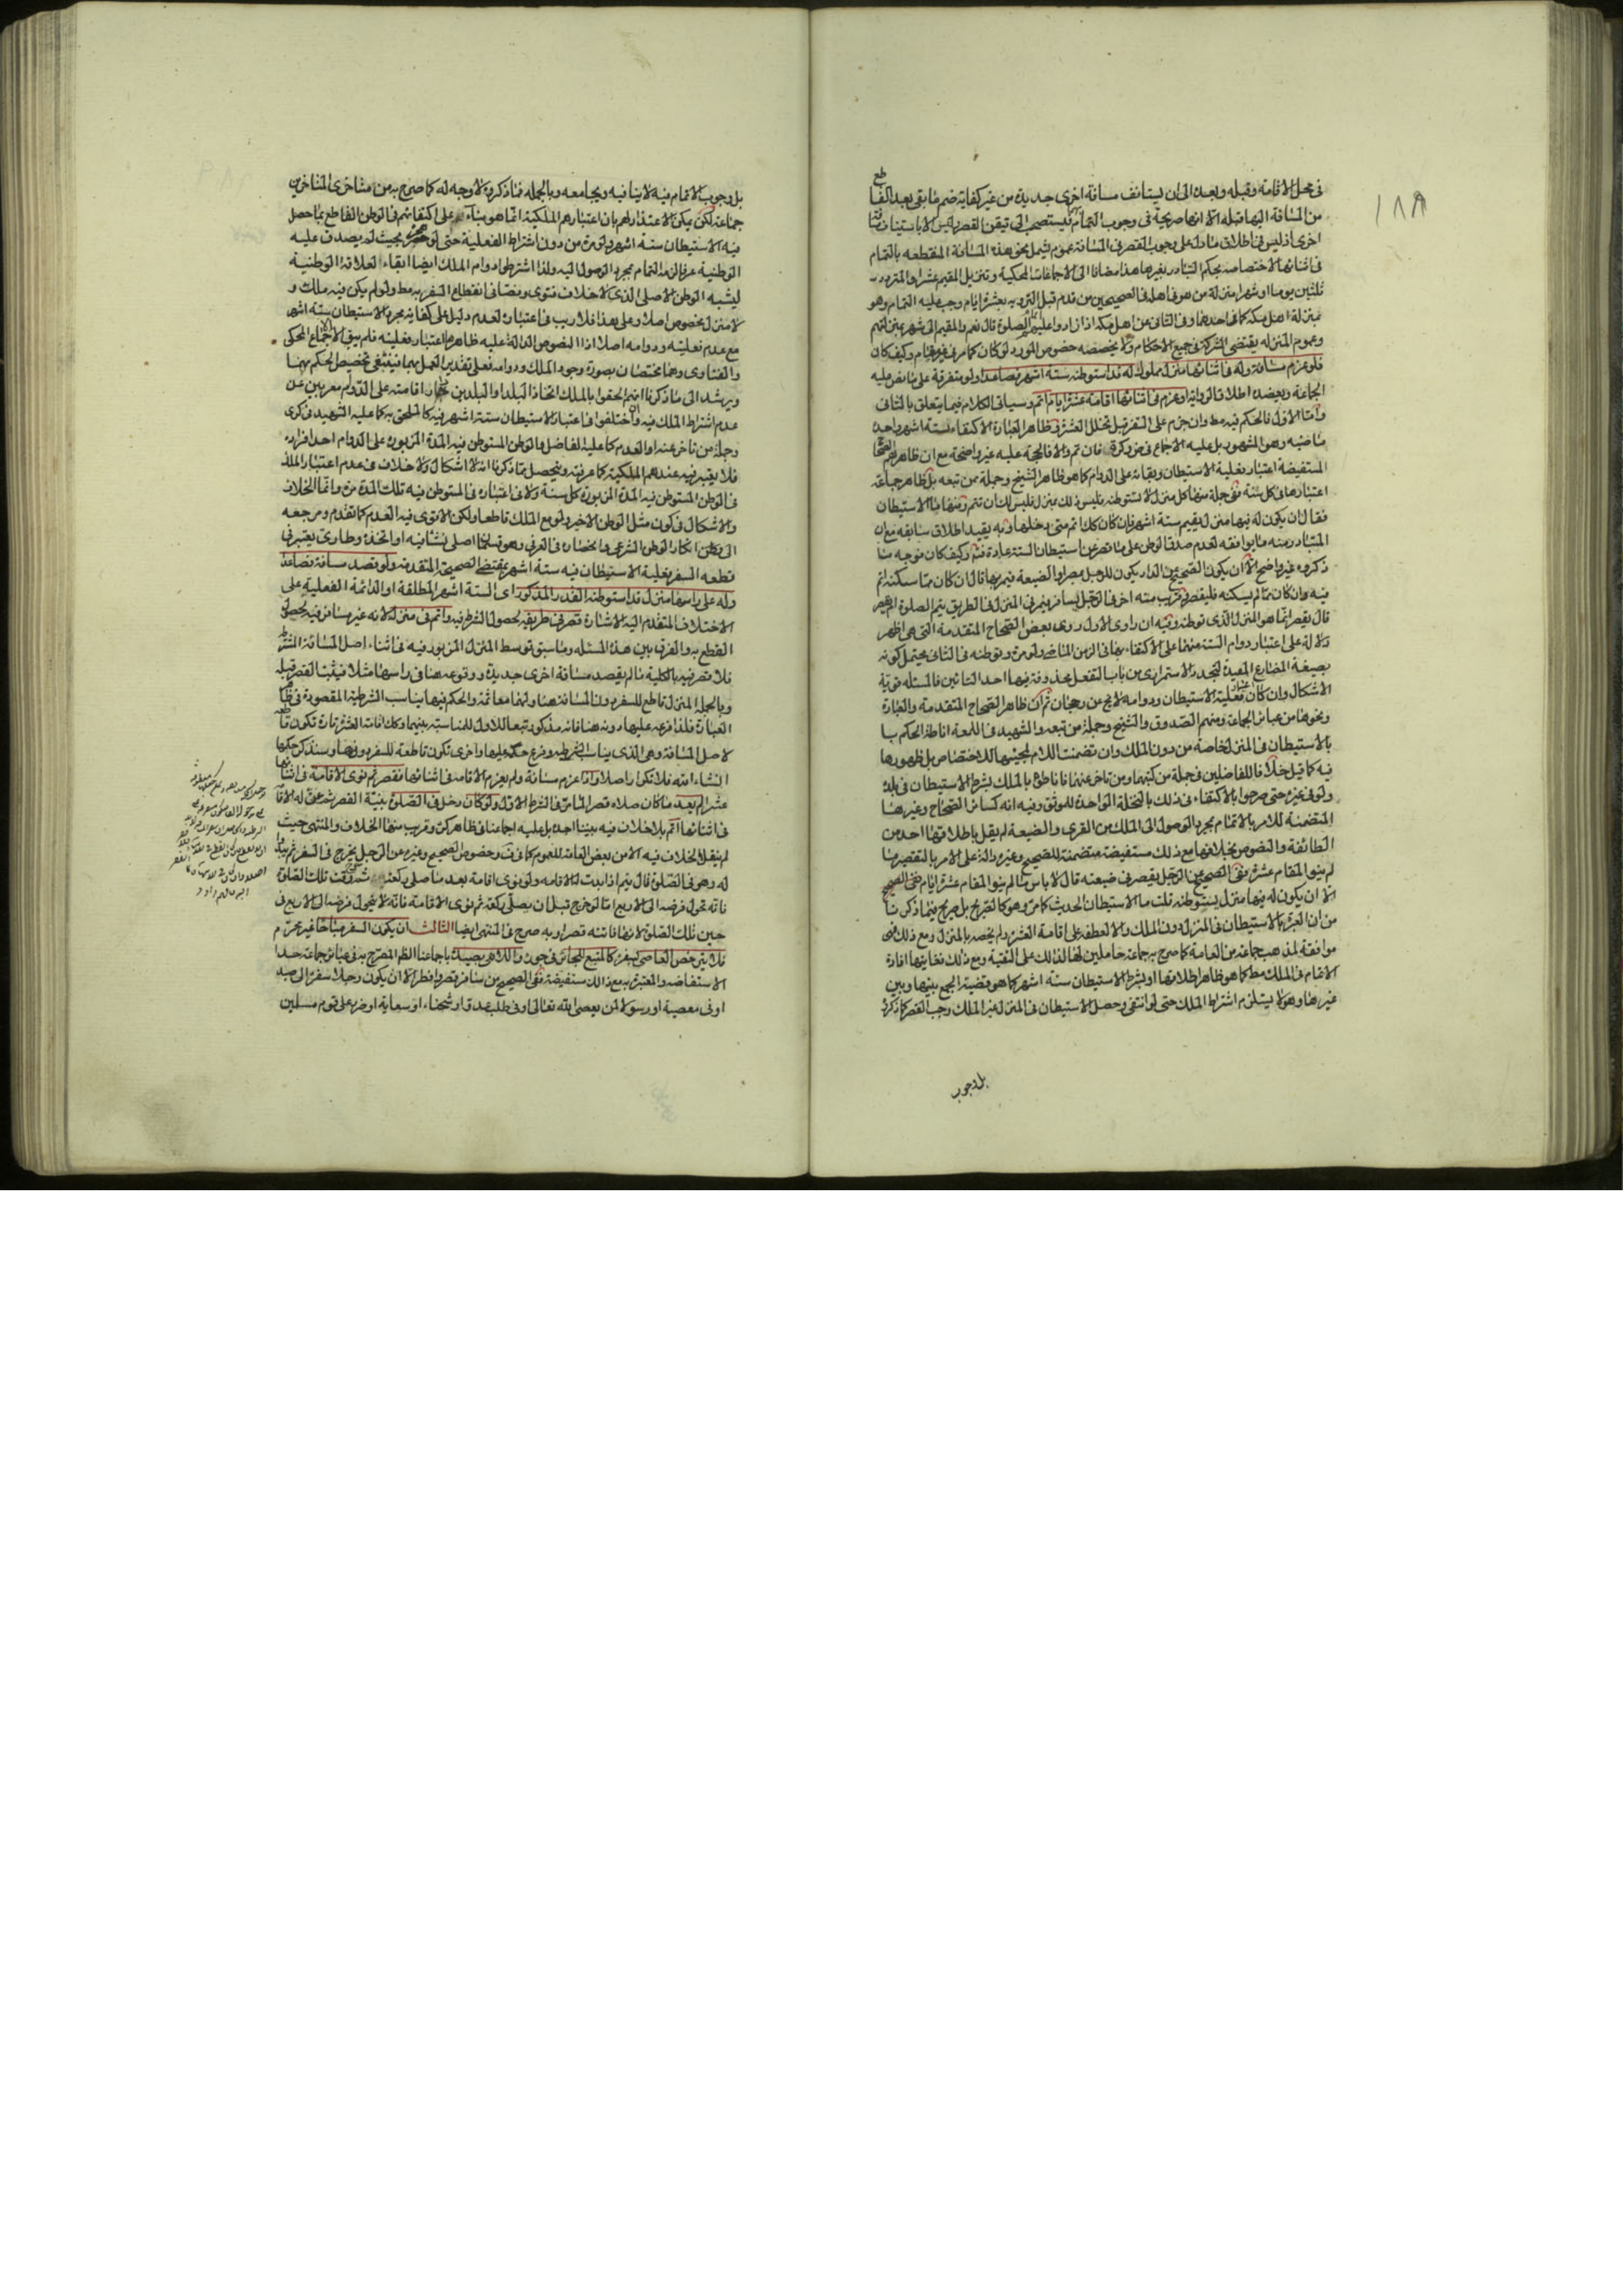 ١٨٩
في محل الاقامة وقبله وبعده الى ان يستانف مسافة اخرى جديدة من غير كفاية ضم ما بقي بعد القا
طع
من المسافة اليها قبله الا انها صريحة في وجوب التمام فيستصحب الى تيقن القصر وليس الا باستيناف
اخرى اذ ليس في اطلاق ما دل على وجوب القصر في المسافة عموم يشمل نحو هذه المسافة المنقطعه بالتمام
في اثنائها لاختصاصه بحكم التبادر بغيرها هذا مضافا الى الاجماعات المحكية وتنزيل المقيم عشرا والمتردد
ثلثين يوما او شهرا منزلة من هو في اهله في الصحيحين من قدم قبل التروية بعشرة ايام وجب عليه التمام وهو
بمنزلة اهل مكة كما في احدهما وفي الثاني عن اهل مكة اذا زاروا عليهم الصلوة قال نعم والمقيم الى شهر بمنزلتهم
وعموم المنزلة يقتضي الشركة في جميع الاحكام ولا يخصصه خصوص المورد لو كان كما مر في غير مقام وكيف كان
فلو عزم مسافة وله في اثنائها منزل مملوك له قد استوطنه ستة اشهر فصاعدا ولو متفرقة على ما نص عليه
الجماعة ويعضده اطلاق الرواية او عزم في اثنائها اقامة عشرة ايام اتم وسياتي الكلام فيما يتعلق بالثاني
واما الاول فالحكم فيه مط وان جزم على السفر قبل تخلل العشرة في ظاهر العبارة الاكتفاء بستة اشهر واحدة
ماضية وهو المشهور بل عليه الاجماع في ض وكرة فان تم والا فالحجة عليه غير واضحة مع ان ظاهر الصحاح
المستفيضة اعتبار فعلية الاستيطان وبقائه على الدوام كما هو ظاهر الشيخ وجملة ممن تبعه بل ظاهر جماعة
اعتبارها في كل سنة ففي جملة منها كل منزل لا تستوطنه فليس ذلك بمنزل فليس لك ان تتم ومنها ما الاستيطان
فقال ان يكون له فيها منزل يقيم ستة اشهر فان كان كك اتم متى دخلها وبه يقيد اطلاق سابقه مع ان
المتبادر منه ما يوافقه لعدم صدق الوطن على ما قصر عن استيطان الستة عادة فتم وكيف كان فوجه ما
ذكروه غير واضح الا ان يكون الصحيح عن الدار يكون للرجل بمصر او الضيعة فيمر بها قال ان كان مما سكنه اتم
فيه وان كان مما لم يسكنه فليقصر وقريب منه اخر في الرجل يسافر فيمر في المنزل في الطريق يتم الصلوة ام يقصر
قال يقصر انما هو المنزل الذي توطنه وفيه ان راوي الاول روى بعض الصحاح المتقدمة التي هي اظهر
دلالة على اعتبار دوام الستة منهما على الاكتفاء بها في الزمن الماضي ولو مرة وتوطنه في الثاني يحتمل كونه
بصيغة المضارع المفيدة للتجدد والاستمراري من باب التفعل بحذف فيها احد التائين فالمسئلة قوية
الاشكال وان كان اعتبار فعلية الاستيطان ودوامه لا يخ عن رجحان ثم ان ظاهر الصحاح المتقدمة والعبارة
ونحوها من عبائر الجماعة ومنهم الصدوق والشيخ وجملة ممن تبعه والشهيد في اللمعة اناطة الحكم بـ
بالاستيطان في المنزل خاصة من دون الملك وان تضمنت اللام لمجيئها للاختصاص بل ظهورها
فيه كما قيل خلافا للفاضلين في جملة من كتبهما ومن تاخر عنهما فاناطوه بالملك بشرط الاستيطان في بلده
ولو في غيره حتى صرحوا بالاكتفاء في ذلك بالنخلة الواحدة للموثق وفيه انه كسائر الصحاح وغيرها
المتضمنة للامر بالاتمام بمجرد الوصول الى الملك من القرى والضيعة لم يقل باطلاقها احد من
الطائفة والنصوص بخلافها مع ذلك مستفيضة متضمنة للصحيح وغيره دالة على الامر بالتقصير ما
لم ينو المقام عشرة ففي الصحيح عن الرجل يقصر في ضيعته قال لا باس ما لم ينو المقام عشرة ايام
الا ان يكون له فيها منزل يستوطنه قلت ما الاستيطان الحديث كما مر وهو كالصريح بل صريح فيما ذكرنا
من ان العبرة بالاستيطان في المنزل دون الملك والا لعطفه على اقامة العشرة ولم يخصه بالمنزل ومع ذلك فهي
موافقة لمذهب جماعة من العامة كما صرح به جماعة حاملين لها لذلك على التقية ومع ذلك فغايتها افادة
الاتمام في الملك مط كما هو ظاهر اطلاقها او بشرط الاستيطان ستة اشهر كما هو قضية الجمع بينها وبين
غيرها وهو لا يستلزم اشتراط الملك حتى لو انتفى وحصل الاستيطان في المنزل غير الملك وجب القصر كما ذكروه
بل وجوب
بل وجوب الاتمام فيه لا ينافيه ويجامعه وبالجملة فما ذكروه لا وجه له كما صرح به من مشاخري المتاخرين
جماعة لكن يمكن الاعتذار لهم بان اعتبارهم الملكية انما هو بناء على اكتفائهم في الوطن القاطع بما حصل
فيه الاستيطان ستة اشهر ولو مرة من دون اشتراط الفعلية حتى لو هجره بحيث لم يصدق عليه
الوطنية عرفا لزمه التمام بمجرد الوصول اليه ولذا اشترطوا دوام الملك ايضا ابقاء لعلاقة الوطنية
ليشبه الوطن الاصلي الذي لا خلاف فتوى ونصا في انقطاع السفر به مط ولو لم يكن فيه ملك و
لا منزل بخصوص اصلا وعلى هذا فلا ريب في اعتباره لعدم دليل على كفاية مجرد الاستيطان ستة اشهر
مع عدم فعليته ودوامه اصلا اذ النصوص الدالة عليه ظاهرها اعتبار فعليته فلم يبق الا الاجماع المحكي
والفتاوى وهما مختصان بصورة وجود الملك ودوامه فعلى تقدير العمل بهما فينبغي تخصيص الحكم بهما
ويرشد الى ما ذكرنا انهم الحقوا بالملك اتخاذ البلد او البلدين دار اقامته على الدوام معربين عن
عدم اشتراط الملك فيه واختلفوا في اعتبار الاستيطان ستة اشهر فيه كالملحق به كما عليه الشهيد في كرى
وجملة من تاخر عنه او العدم كما عليه الفاضل والوطن المستوطن فيه المدة المزبورة على الدوام احد افراده
فلا يعتبر فيه عندهم الملكية كما عرفته ويتحصل مما ذكرنا انه لا اشكال ولا خلاف في عدم اعتبار الملك
في الوطن المستوطن فيه المدة المزبورة كل سنة ولا في اعتباره في المستوطن فيه تلك المدة مرة وانما الخلاف
والاشكال في كون مثل الوطن الاخير ولو مع الملك قاطعا ولكن الاقوى فيه العدم كما تقدم ومرجعه
الى انكار الوطن الشرعي وانحصاره في العرفي وهو قسمان اصلي نشا فيه او اتخذه وطارئ يعتبر في
قطعه السفر فعلية الاستيطان فيه ستة اشهر بمقتضى الصحيحة المتقدمة ولو قصد مسافة فصاعدا
وله على راسها منزل قد استوطنه القدر المذكور اي الستة اشهر المطلقة او الدائمة الفعلية على
الاختلاف المتقدم اليه الاشارة قصر في طريقه لحصول الشرط فيه واتم في منزله لانه غير مسافر فيه لحصول
القطع به والفرق بين هذه المسئلة وما سبق توسط المنزل المزبور فيه في اثناء اصل المسافة الشر
فلا قصر فيه بالكلية ما لم يقصد مسافة اخرى جديدة ووقوعه هنا في راسها مثلا فيثبت القصر قبله
وبالجملة المنزل قاطع للسفر ونا المسافة هنا ولهما معا ثمة والحكم فيها يناسب الشرطية المقصودة في ظا
العبارة فلذا فرعه عليها دونه هنا فانه مذكور تبعا للاول للمناسبة بينهما وكك اقامة العشرة تارة تكون قا
لاصل المسافة وهي الذي يناسب الشرطيه وفرع حكمه عليها واخرى تكون قاطعة للسفر دونها وسنذكر حكمها
انشاء الله فلا تكرار اصلا واذا عزم مسافة ولم يعزم الاقامة في اثنائها فقصر ثم نوى الاقامة في اثنا
عشرا لم يعد ما كان صلاه قصرا لما مر في الشرط الاول ولو كان دخل في الصلوة بنية القصر ثم عن له الاقا
في اثنائها اتم بلا خلاف فيه بيننا اجده بل عليه اجماعنا في ظاهر كرة وقريب منها الخلاف والمنتهى حيث
لم ينقل الخلاف فيه الا من بعض العامة للعموم كما في ف وخصوص الصحيح وغيره عن الرجل يخرج في السفر ثم يبدو
له وهو في الصلوة قال يتم اذا بدت له الاقامة ولو نوى اقامة بعد ما صلى ركعة خرج وقت تلك الصلوة
فانه تحول فرضه الى الاربع اما لو خرج قبل ان يصلي ركعة ثم نوى الاقامة فانه لا يتحول فرضه الى الاربع في
حين تلك الصلوة لانها فاتته قصرا وبه صرح في المنتهى ايضا الثالث ان يكون السفر مباحا غير محرم
فلا يترخص العاصي بسفره كالمتبع للجائر في جوره واللاهي بصيده باجماعنا الظ المصرح به في عبائر جماعة حد
الاستفاضة والمعتبرة به مع ذلك مستفيضة ففي الصحيح من سافر قصر وافطر الا ان يكون رجلا سفره الى صيد
او في معصية او رسولا لمن يعصي الله تعالى او في طلب عدو او شحناء او سعاية او ضر على قوم مسلمين